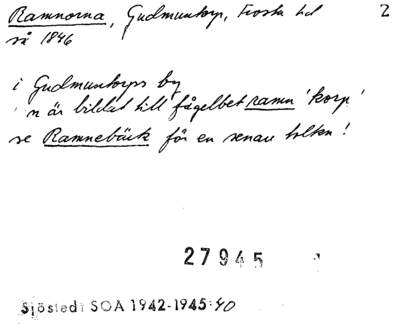 Ramnorna, Gudmuntorp, Frosta hd 2
så 1846
i Gudmuntorps by
n är bildat till fågelbet ramn 'korp'
se Ramnebäck för en senare tolkn!
27945
Sjöstedt SOA 1942-1945:40